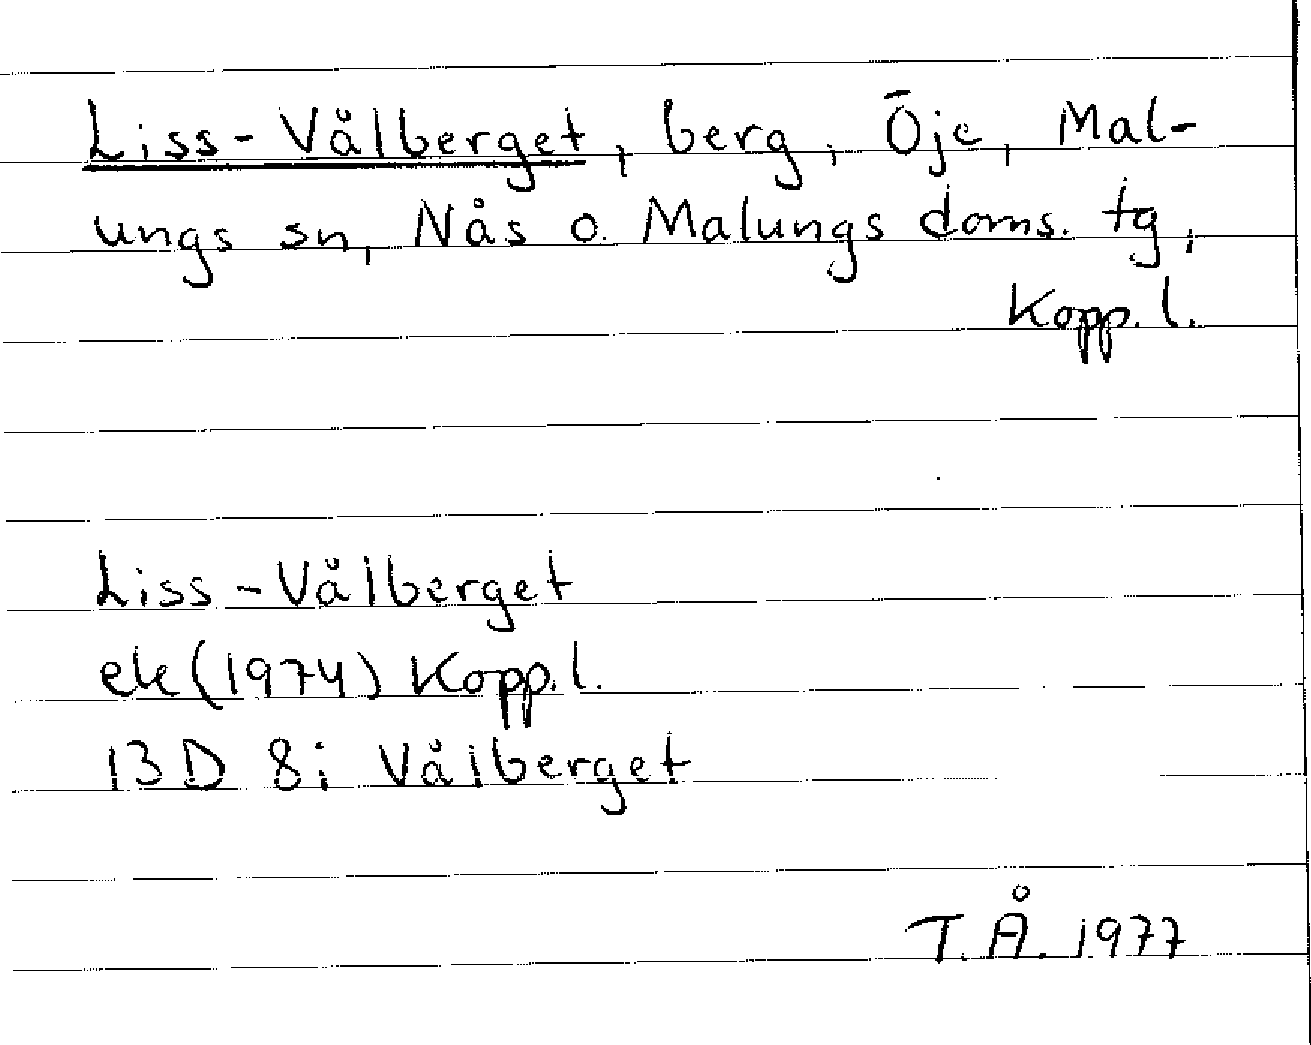 Liss-Vålberget, berg, Öje, Mal-
ungs sn, Nås o. Malungs doms. tg,
Kopp. l.
Liss-Vålberget
ek (1974) Kopp. l.
13D 8i Vålberget
T.Å. 1977